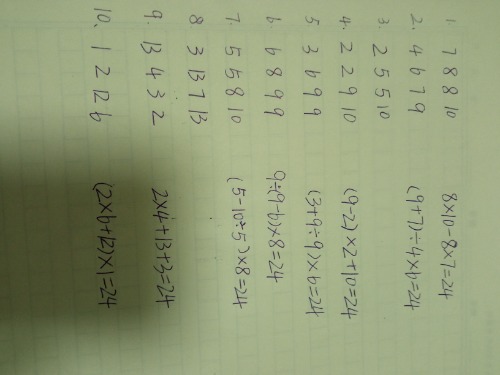 1. 7 8 8 10 8×10-8×7=24
2. 4 6 7 9 (9+7)÷4×6=24
3. 2 5 5 10
4. 2 2 9 10 (9-2)×2+10=24
5. 3 6 9 9 (3+9÷9)×6=24
6. 6 8 9 9 9÷(9-6)×8=24
7. 5 5 8 10 (5-10÷5)×8=24
8. 3 13 7 13
9. 13 4 3 2 2×4+13+3=24
10. 1 2 12 6 (2×6+12)×1=24